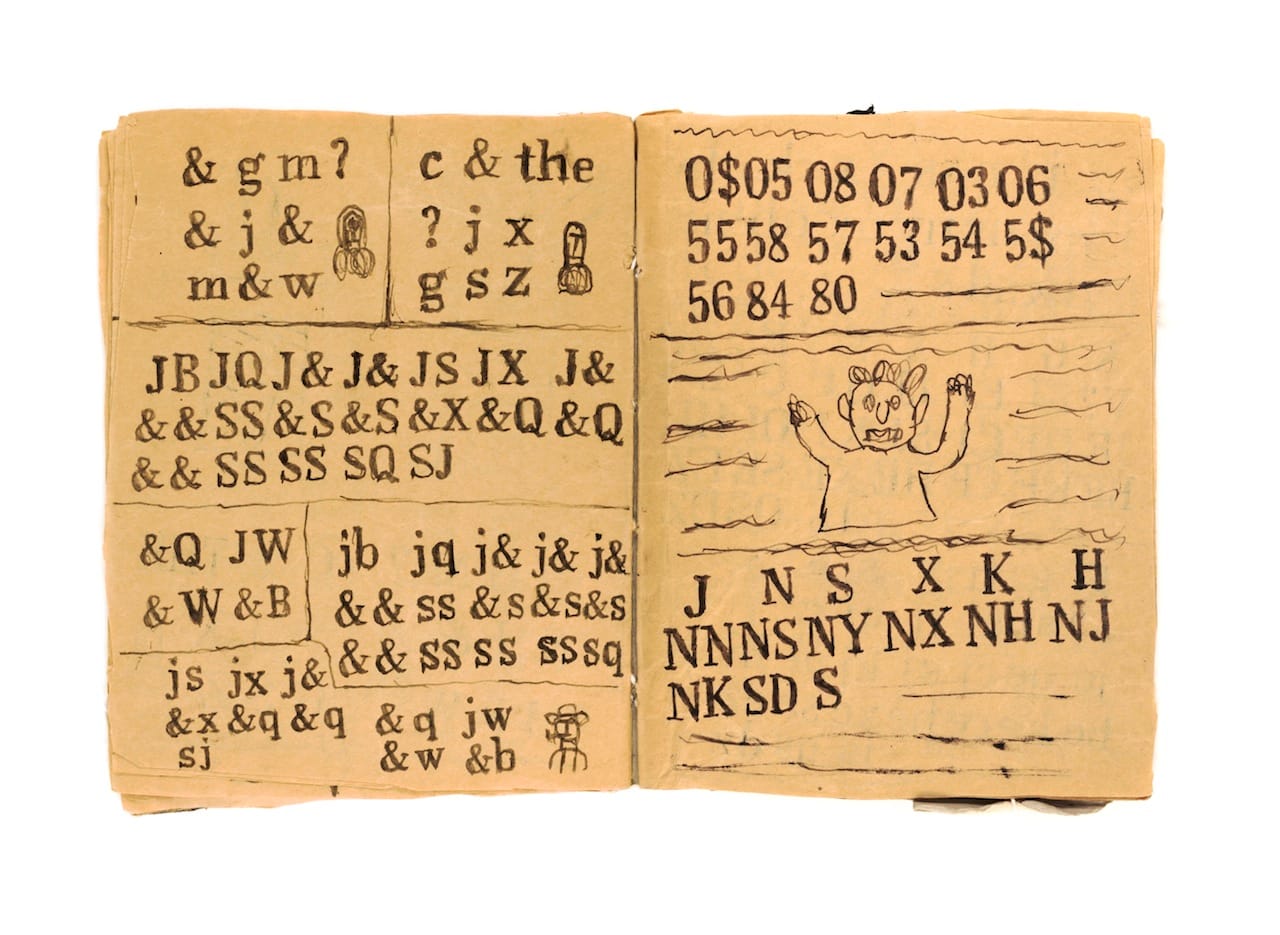 & g m ?
& j &
m & w
c & the
? j x
g s z
JB JQ J& J& JS JX J&
& & SS & S & S & X & Q & Q
& & SS SS SQ SJ
&Q JW
& W & B
jb jq j& j& j&
& & ss & s & s & s
& & ss ss ss sq
js jx j&
& x & q & q
sj
& q jw
& w & b
0$ 05 08 07 03 06
55 58 57 53 54 5$
56 84 80
J N S X K H
NN NS NY NX NH NJ
NK SD S